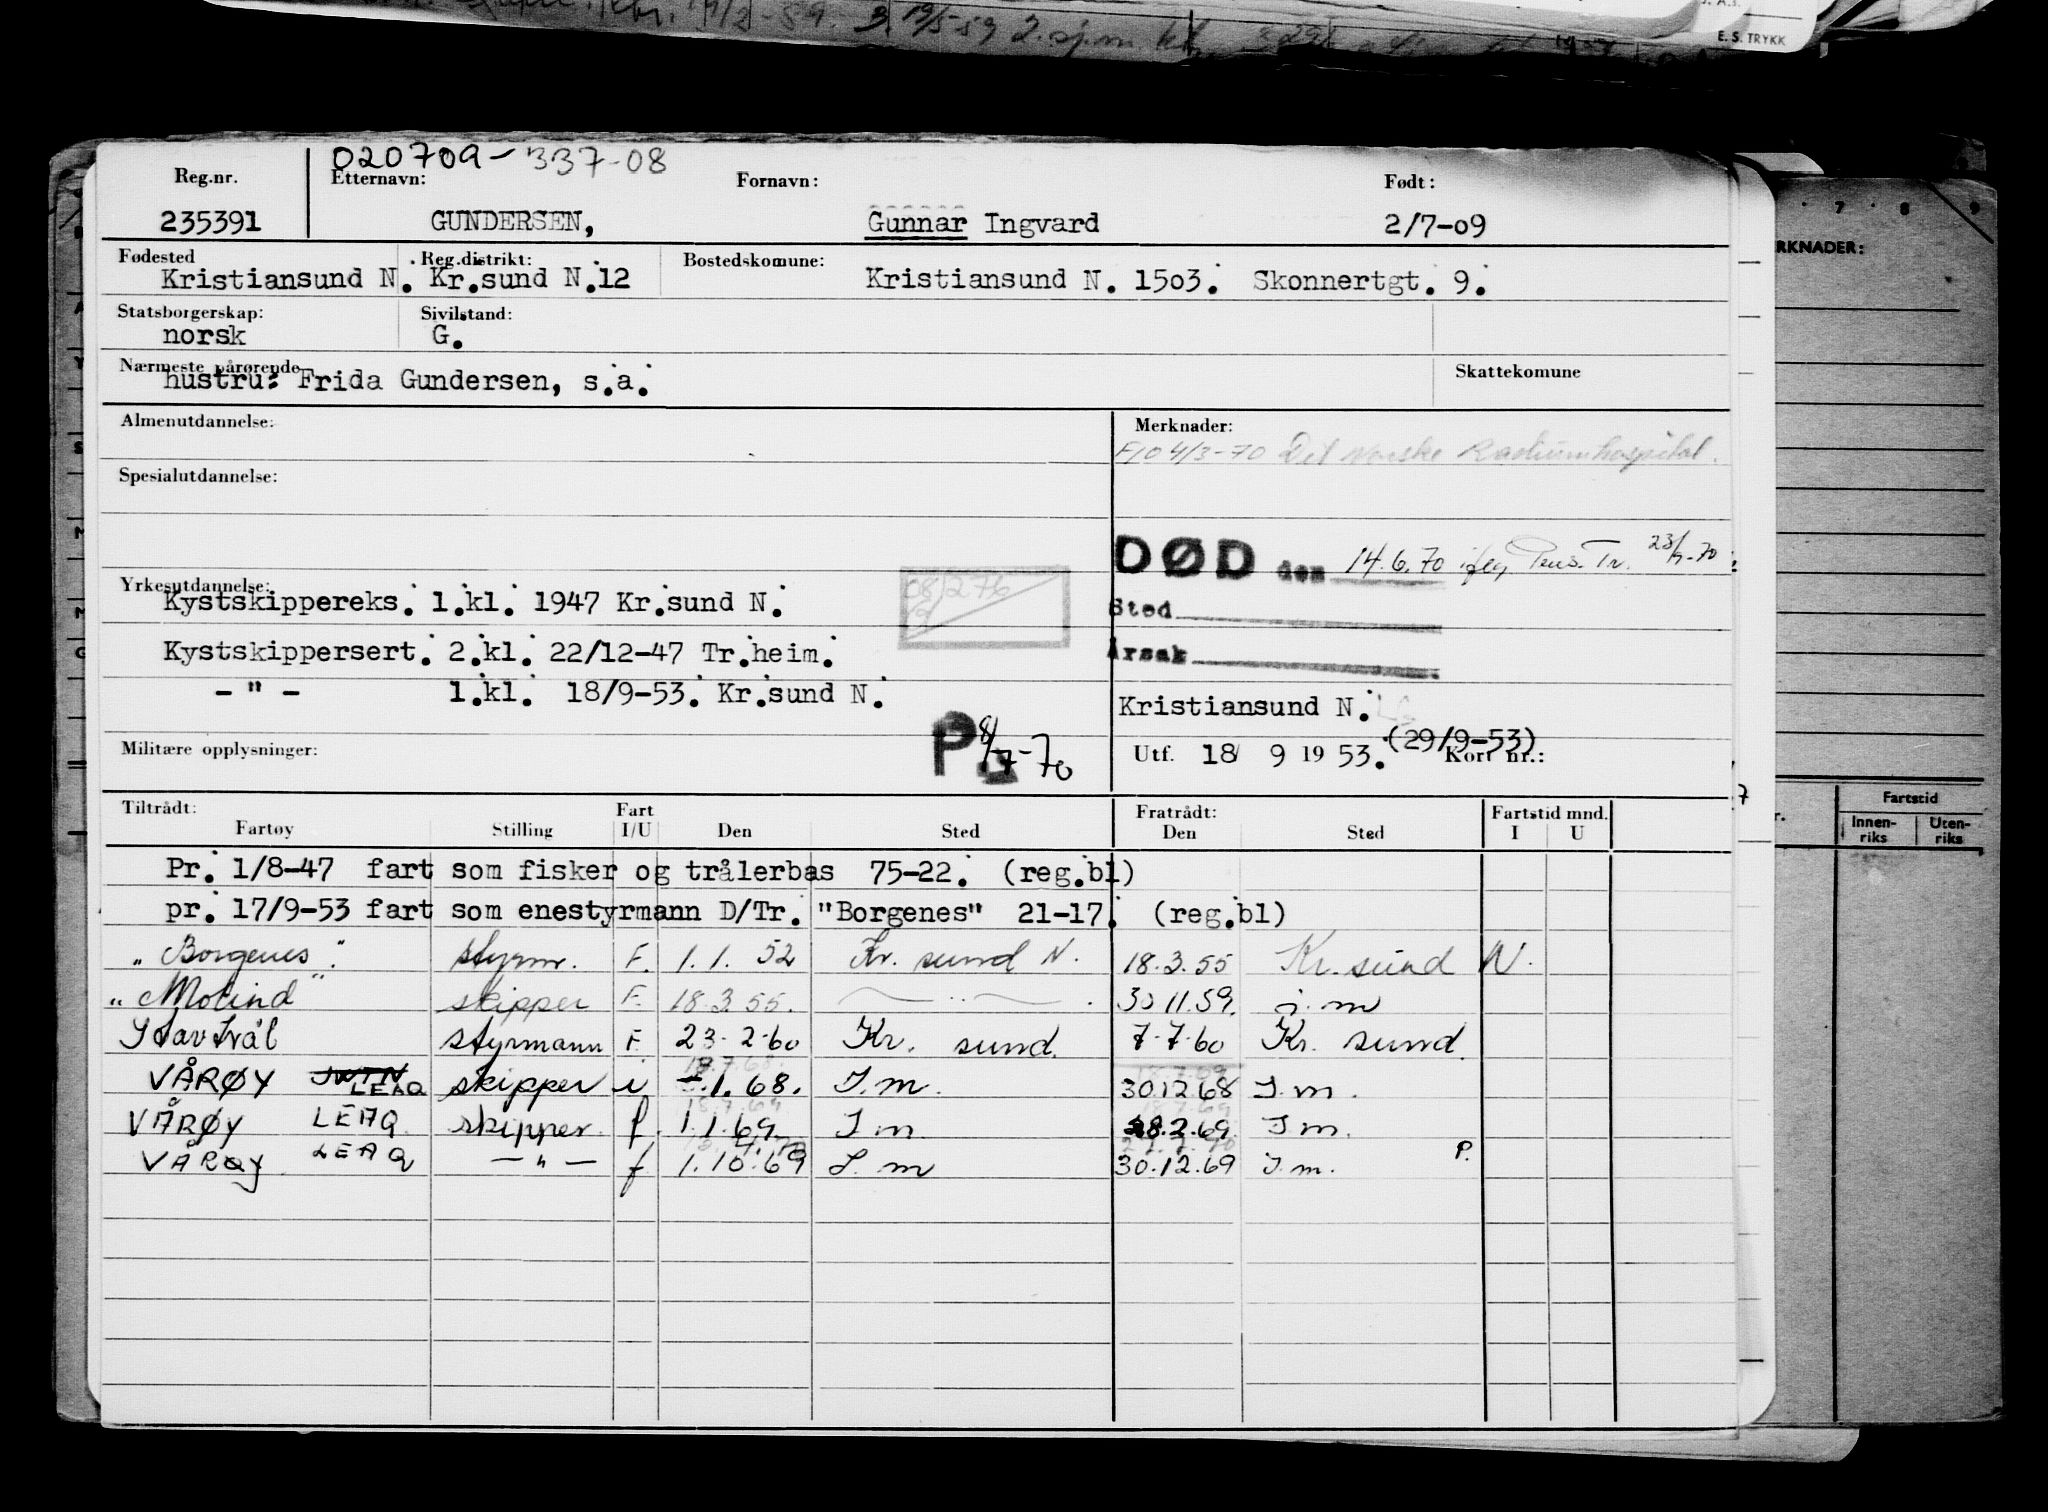 E. S. TRYKK
020709-337-08
Reg.nr. Etternavn: Fornavn: Født:
235391 GUNDERSEN, Gunnar Ingvard 2/7-09
Fødested Reg.distrikt: Bostedskomune:
Kristiansund N. Kr.sund N.12 Kristiansund N. 1503. Skonnertgt. 9.
Statsborgerskap: Sivilstand:
norsk G.
Nærmeste pårørende Skattekomune
hustru: Frida Gundersen, s.a.
Almenutdannelse: Merknader:
4/3-70 Det Norske Radiumhospital.
Spesialutdannelse:
DØD den 14.6.70 iflg 
Sted
Årsak
Yrkesutdannelse:
Kystskippereks. 1.kl. 1947 Kr.sund N.
Kystskippersert. 2.kl. 22/12-47 Tr.heim.
- " - 1.kl. 18/9-53. Kr.sund N.
Kristiansund N.
P 8/7-70
(29/9-53)
Militære opplysninger: Utf. 18/ 9 1953. Kort nr.:
Tiltrådt: Fart Fratrådt: Fartstid mnd.
Fartøy Stilling I/U Den Sted Den Sted I U
Pr. 1/8-47 fart som fisker og trålerbas 75-22. (reg.bl)
pr. 17/9-53 fart som enestyrmann D/Tr. "Borgenes" 21-17. (reg.bl)
"Borgenes". styrm. F. 1.1.52 Kr. sund N. 18.3.55 Kr. sund N.
"Molind" skipper F. 18.3.55. — " — . 30.11.59. j.m
Stavtrål styrmann F. 23-2-60 Kr. sund. 7-7-60 Kr. sund.
VÅRØY LEAQ skipper i 1.68. I.m. 30.12.68 I.m.
VÅRØY LEAQ skipper. f. 1.1.69 I m. 28.2.69 I m.
VÅRØY LEAQ — " — f 1.10.69 I.m 30.12.69 I.m. P.
RKNADER:
Fartstid
Innen-riks Uten-riks